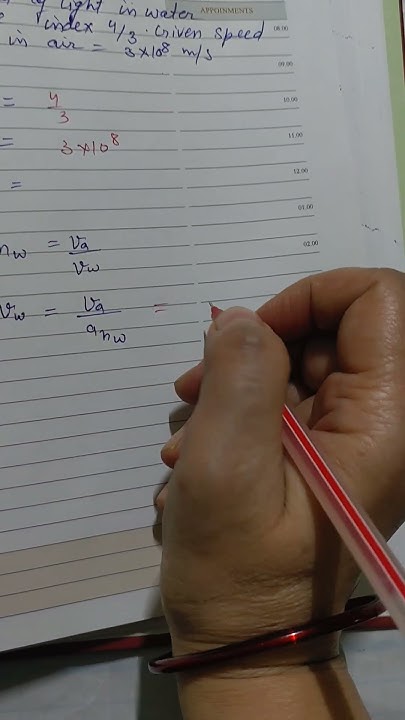 of light in water
index 4/3. Given speed
in air = 3×10⁸ m/s
APPOINMENTS
08.00
09.00
= 4/3
10.00
= 3×10⁸
11.00
=
12.00
01.00
n_w = v_a/v_w
02.00
v_w = v_a/ₐn_w =